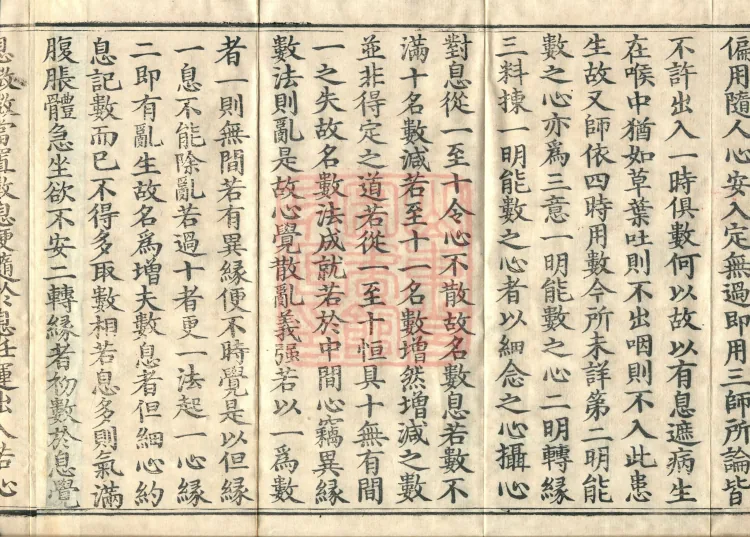 偏用隨人心安入定無過即用三師所論皆
不許出入一時俱數何以故以有息遮病生
在喉中猶如草葉吐則不出咽則不入此患
生故又師依四時用數今所未詳第二明能
數之心亦爲三意一明能數之心二明轉緣
三料揀一明能數之心者以細念之心攝心
對息從一至十令心不散故名數息若數不
滿十名數減若至十一名數增然增減之數
並非得定之道若從一至十恒具十無有間
一之失故名數法成就若於中間心竊異緣
數法則亂是故心覺散亂義强若以一爲數
者一則無間若有異緣便不時覺是以但緣
一息不能除亂若過十者更一法起一心緣
二即有亂生故名爲增夫數息者但細心約
息記數而已不得多取數相若息多則氣滿
腹脹體急坐欲不安二轉緣者初數於息覺
息微數當置數息便隨於息任運出入若心